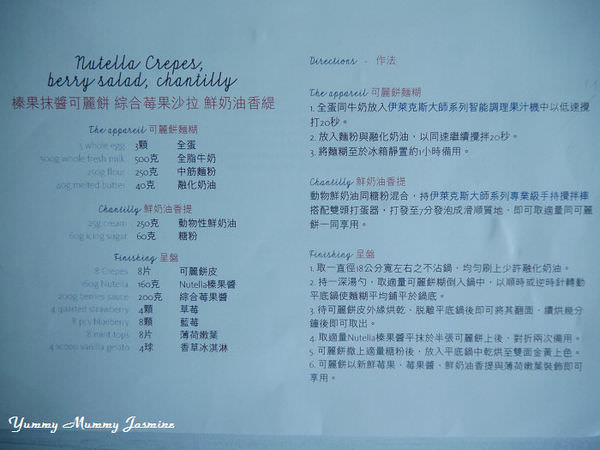 Nutella Crepes,
berry salad, chantilly
榛果抹醬可麗餅 綜合莓果沙拉 鮮奶油香緹
The appareil 可麗餅麵糊
3 whole egg 3顆 全蛋
500g whole fresh milk 500克 全脂牛奶
250g flour 250克 中筋麵粉
40g melted butter 40克 融化奶油
Chantilly 鮮奶油香提
25g cream 250克 動物性鮮奶油
60g icing sugar 60克 糖粉
Finishing 呈盤
8 Crepes 8片 可麗餅皮
160g Nutella 160克 Nutella榛果醬
200g berries sauce 200克 綜合莓果醬
4 quarted strawberry 4顆 草莓
8 pcs blueberry 8顆 藍莓
8 mint tops 8片 薄荷嫩葉
4 scoop vanilla gelato 4球 香草冰淇淋
Directions - 作法
The appareil 可麗餅麵糊
1. 全蛋同牛奶放入伊萊克斯大師系列智能調理果汁機中以低速攪
打20秒。
2. 放入麵粉與融化奶油，以同速繼續攪拌20秒。
3. 將麵糊至於冰箱靜置約1小時備用。
Chantilly 鮮奶油香提
動物鮮奶油同糖粉混合，持伊萊克斯大師系列專業級手持攪拌棒
搭配雙頭打蛋器，打發至7分發泡成滑順質地，即可取適量同可麗
餅一同享用。
Finishing 呈盤
1. 取一直徑18公分寬左右之不沾鍋，均勻刷上少許融化奶油。
2. 持一深湯勺，取適量可麗餅麵糊倒入鍋中，以順時或逆時針轉動
平底鍋使麵糊平均鋪平於鍋底。
3. 待可麗餅皮外緣烘乾，脫離平底鍋後即可將其翻面，續烘幾分
鐘後即可取出。
4. 取適量Nutella榛果醬平抹於半張可麗餅上後，對折兩次備用。
5. 可麗餅撒上適量糖粉後，放入平底鍋中乾烘至雙面金黃上色。
6. 可麗餅以新鮮莓果、莓果醬、鮮奶油香提與薄荷嫩葉裝飾即可
享用。
Yummy Mummy Jasmine